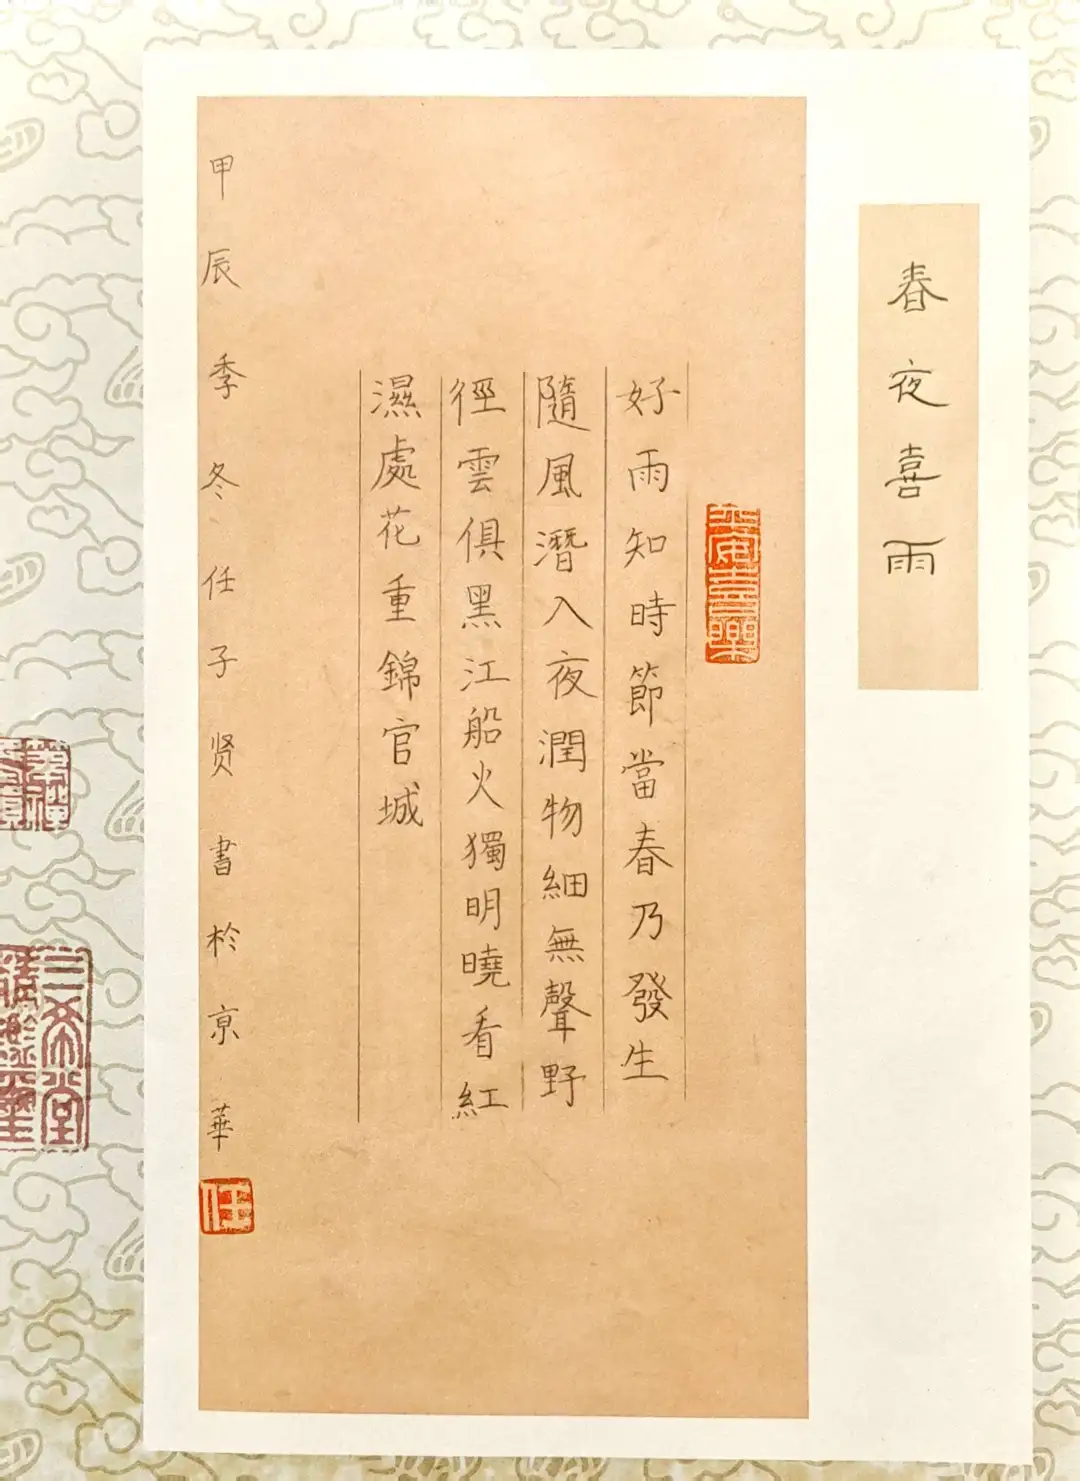 春夜喜雨
好雨知時節當春乃發生
隨風潛入夜潤物細無聲野
徑雲俱黑江船火獨明曉看紅
濕處花重錦官城
甲辰季冬任子贤書於京華
任
三希堂